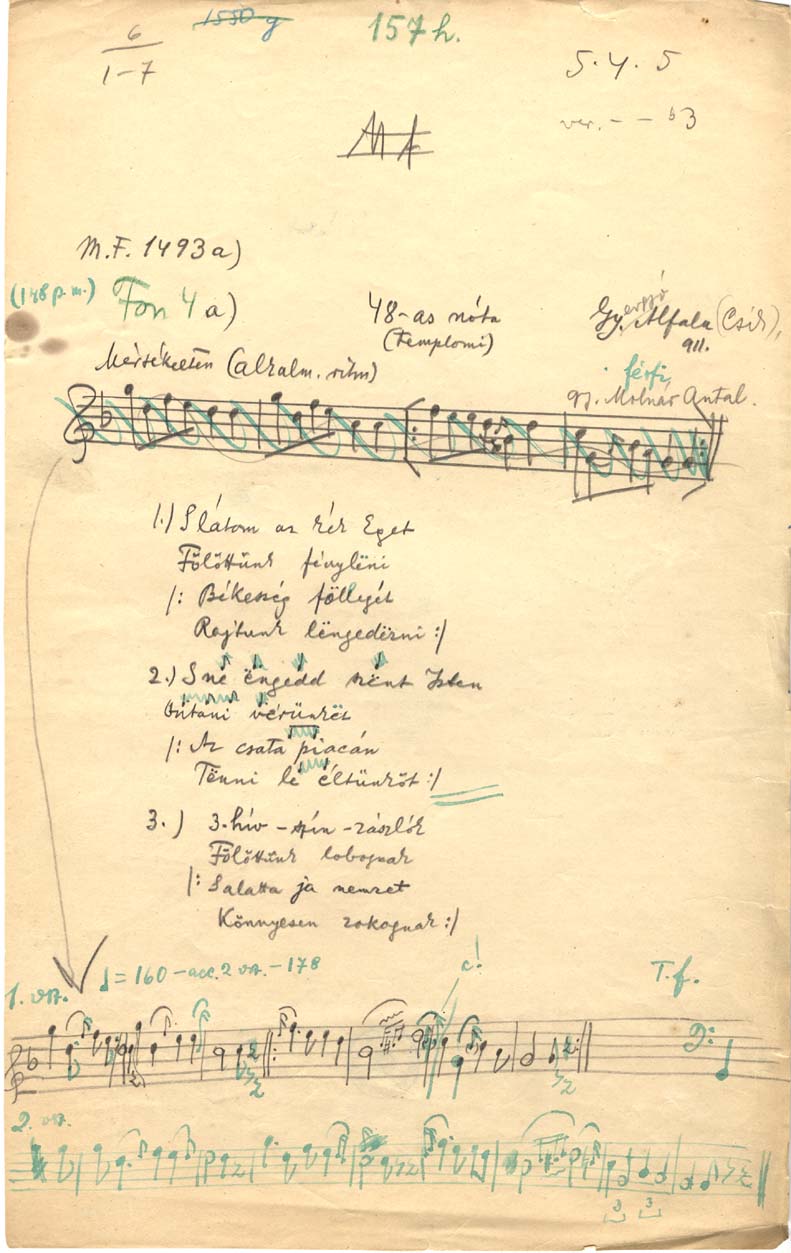 6
1–7
1550 g
157h.
5. 4. 5
ver. – – b3
M.F. 1493a)
(148 p.m.)
Fon 4 a)
48-as nóta
(templomi)
Gyergyó Alfalu (Csík),
911.
férfi,
gy. Molnár Antal.
Mérsékelten (alkalm. ritm)
1.) S látom az kék Eget
Fölöttünk fényleni
/: Békesség föllegét
Rajtunk lëngedëzni :/
2.) S né ëngedd szënt Isten
Ontani vérünkët
/: Az csata piacán
Tënni lé éltünköt :/
3.) 3.hív–szín–zászlók
Fölöttünk lobognak
/: S alatta ja nemzet
Könnyesen zokognak :/
1. vsz.
= 160 – acc. 2 vsz. – 178
c!
T.f.
2. vsz.
3
3